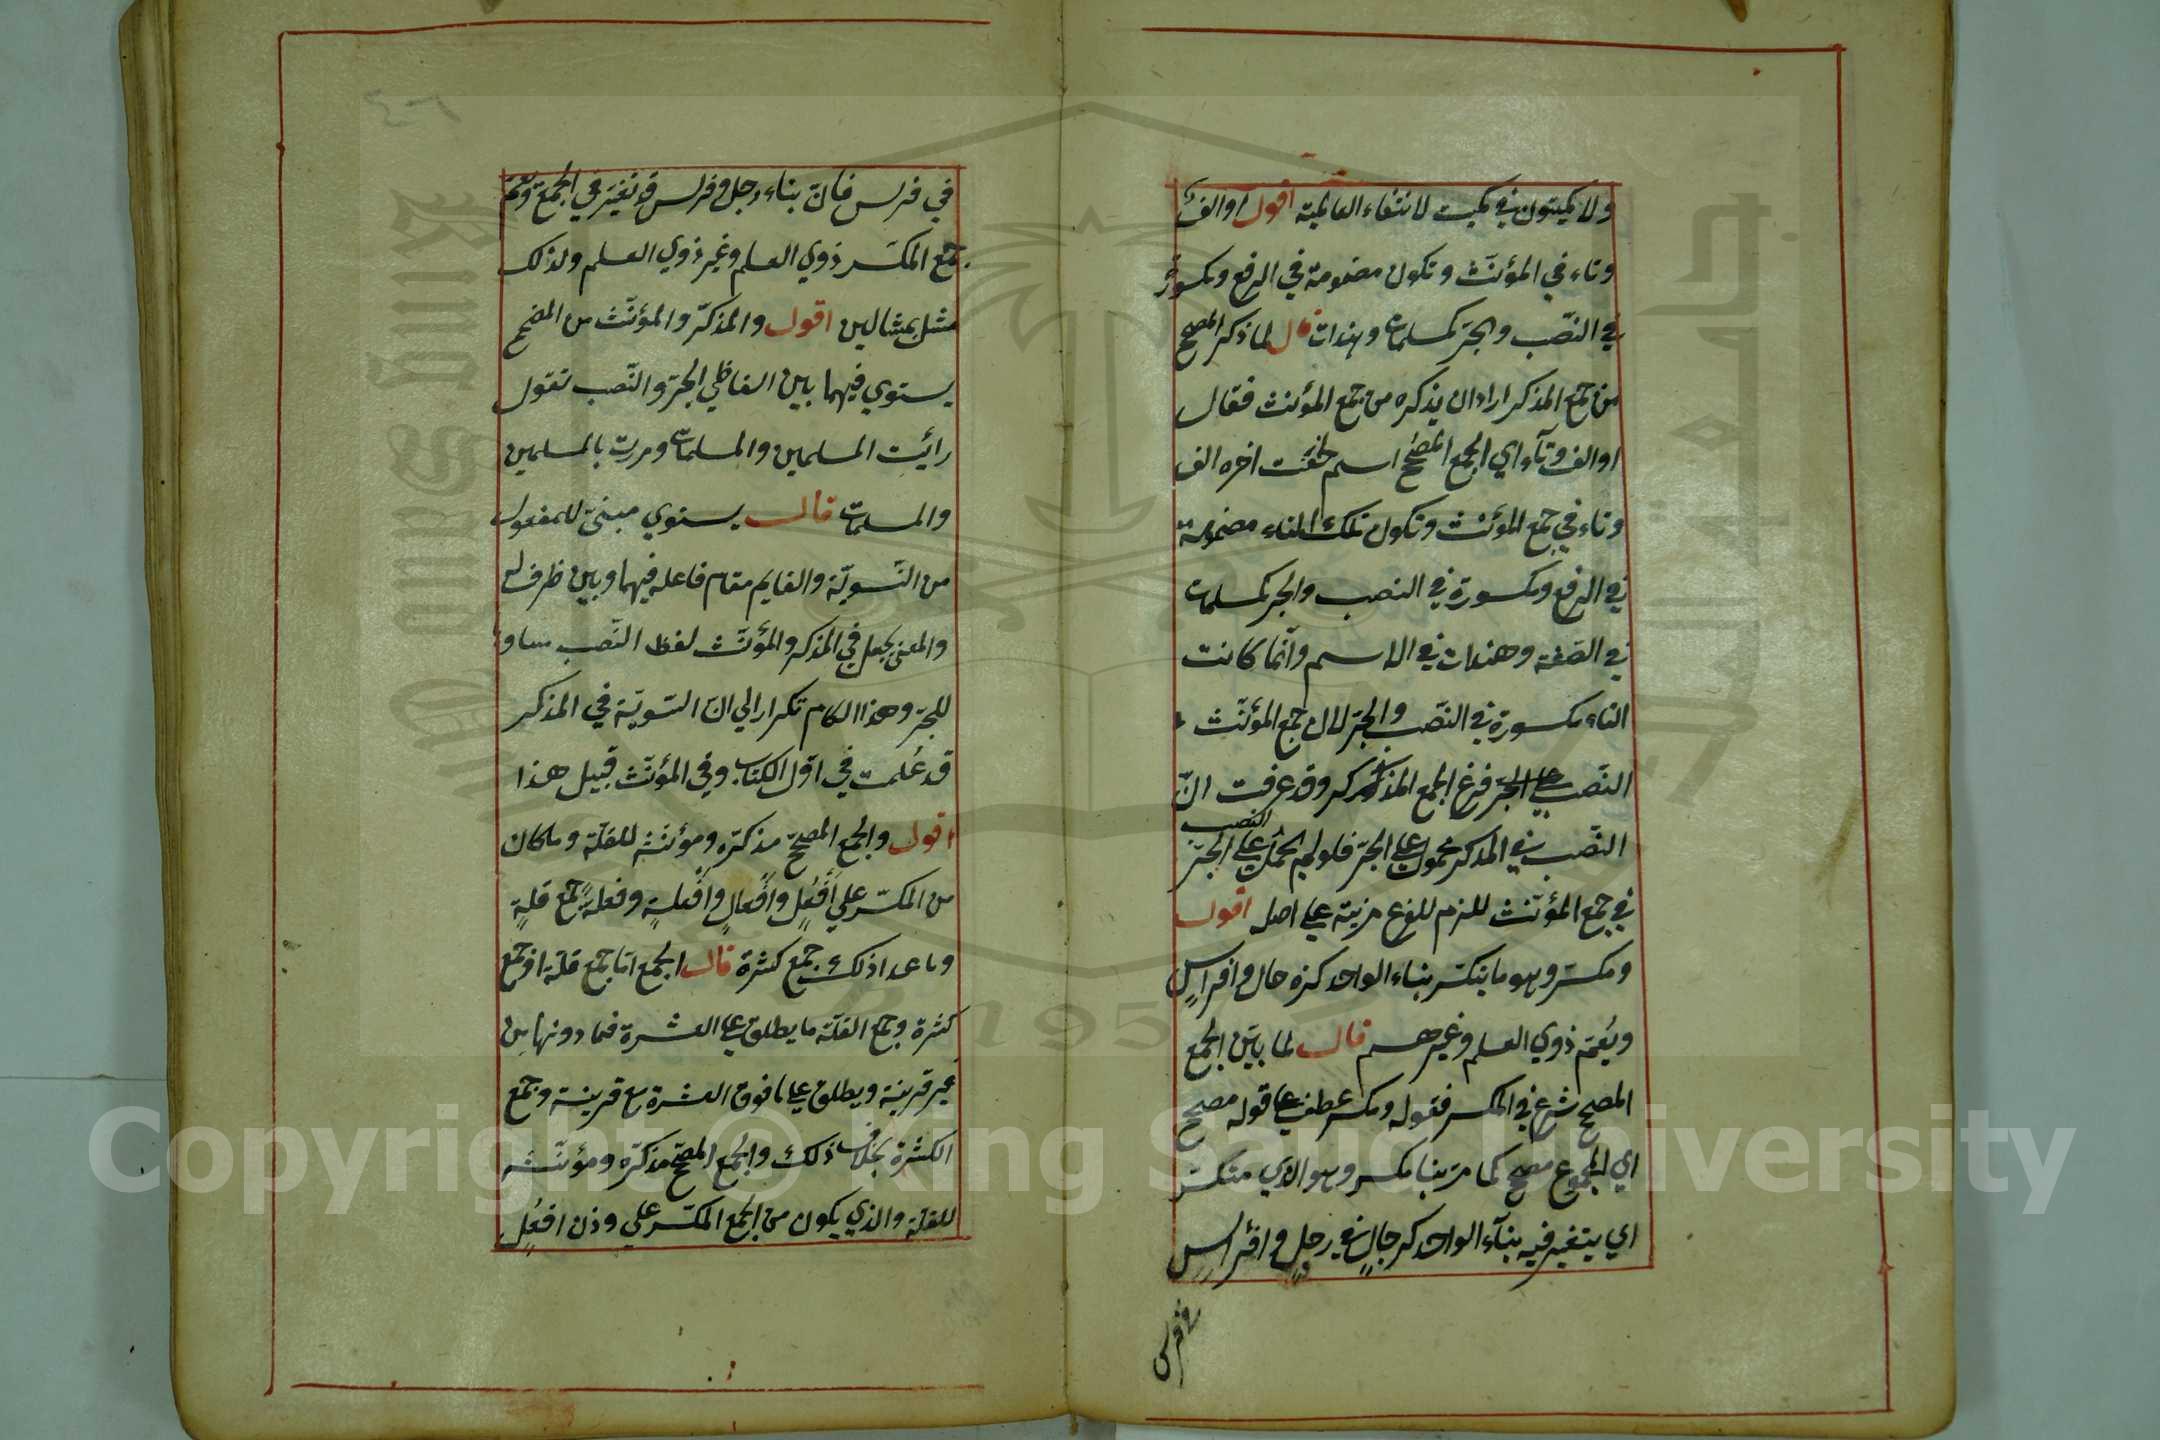 ولا كميتون في كميت لانتفاء العالمية اقول اوالف
وتاء في المؤنّث وتكون مضمومة في الرفع ومكسورة
في النصّب والجرّ كمسلمات وهندات قال لما ذكر المصحح
من جمع المذكر اراد ان يذكره من جمع المؤنث فقال
اوالف وتآء اي الجمع المصحّح اسم لحقت اخره الف
وتاء في جمع المؤنّث وتكون تلك التاء مضمومة
في الرفع ومكسورة في النصب والجر كمسلمات
في الصّفة وهندات في الاسم وانّما كانت
التاء مكسورة في النصّب والجرّ لان جمع المؤنّث
النصّب على الجرّ فرع الجمع المذكر وقد عرفت انّ
النصّب في المذكر محمول على الجرّ فلو لم يحمل النصب على الجرّ
في جمع المؤنّث للزم للفرع مزية على اصل اقول
ومكسّر وهو ما ينكسّر بناء الواحد كرجال وافراسٍ
ويُعمّ ذوي العلم وغيرهم قال لما بيّن الجمع
المصحح شرع في المكسر فقوله ومكسر عطف على قوله مصحح
اي الجموع مصحح كما مرّ بنا مكسر وهو الذي ينكسّر
اي يتغير فيه بنآء الواحد كرجالٍ في رجلٍ وافراسٍ
في فرس
في فرس فانّ بناء رجل وفرس قد تغيّر في الجمع ويعمّ
جمع المكسّر ذوي العلم وغير ذوي العلم ولذلك
مثل بمثالين اقول والمذكّر والمؤنّث من المصحّح
يستوي فيهما بين لفاظي الجرّ والنّصب تقول
رأيت المسلمين والمسلمات ومررت بالمسلمين
والمسلمات قال يستوي مبنىّ للمفعول
من التّسويّة والقايم مقام فاعله فيهما وبين ظرف له
والمعنى يجعل في المذكر والمؤنّث لفظ النّصب مساويا
للجرّ وهذا الكلام تكرار الي انّ التّسويّة في المذكر
قد عُلمت في اوّل الكتاب وفي المؤنّث قبيل هذا
اقول والجمع المصحّح مذكّره ومؤنّثه للقلّة وما كان
من المكسّر علي أفْعُلٍ وأفعالٍ وأفعلةٍ وفعلةٍ جمع قلةٍ
وما عدا ذلك جمع كثرة قال الجمع امّا جمع قلّة او جمع
كثرة وجمع القلّة ما يطلق على العشرة فما دونها من
غير قرينة ويطلق على ما فوق العشرة مع قرينة وجمع
الكثرة بخلاف ذلك والجمع المصحّح مذكّره ومؤنّثه
للقلة والذي يكون من الجمع المكسّر علي وزن افعُلٍ
Copyright © King Saud University